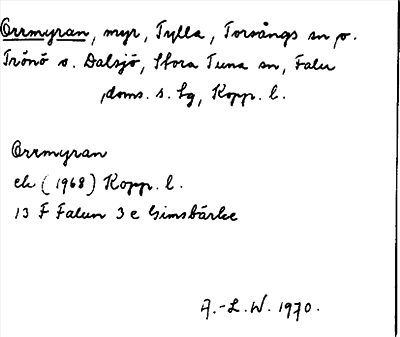 Orrmyran, myr, Tylla, Torsångs sn o.
Trönö o. Dalsjö, Stora Tuna sn, Falu
doms. s. lg, Kopp. l.
Orrmyran
ek (1968) Kopp. l.
13 F Falun 3 e Gimsbärke
A.-L.W. 1970.